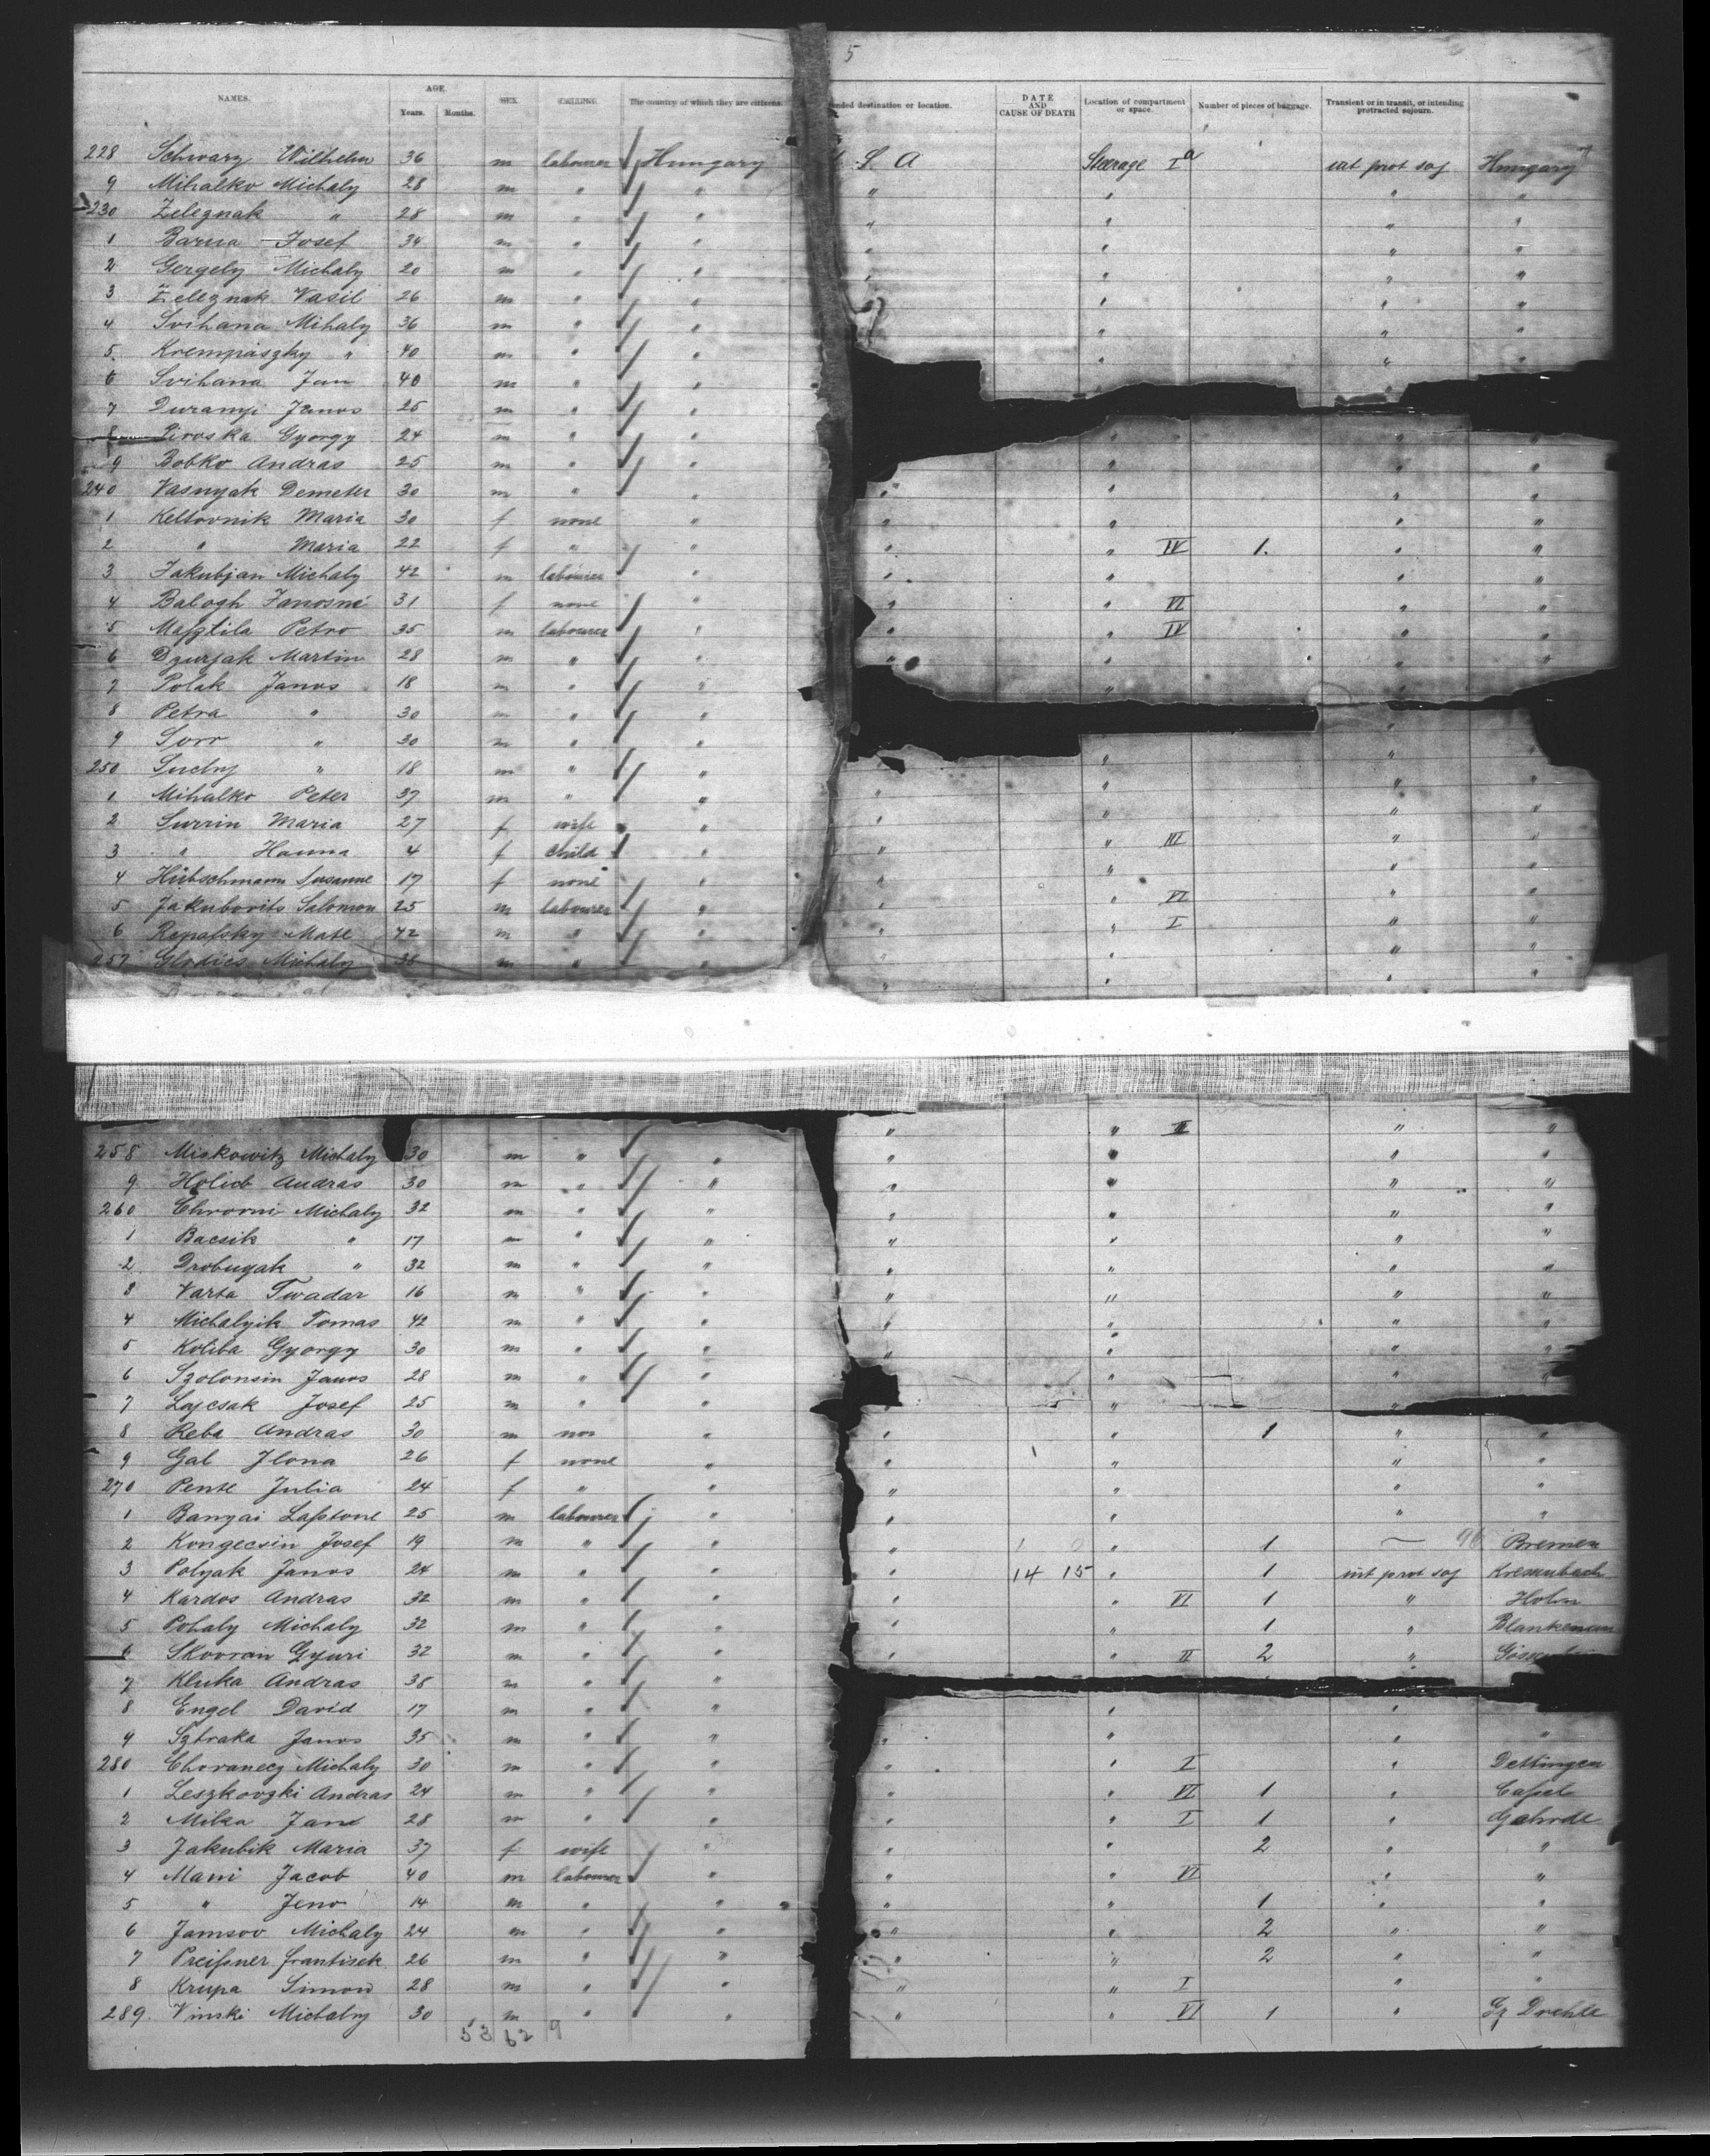 5
NAMES. AGE. Years. Months. SEX. CALLING. The country of which they are citizens. nded destination or location. DATE AND CAUSE OF DEATH Location of compartment or space. Number of pieces of baggage. Transient or in transit, or intending protracted sojourn.
228 Schwarz Wilhelm 36 m labourer Hungary S. A Steerage I a int prot soj Hungary
9 Mihalko Michaly 28 m " " " " " "
230 Zeleznak " 28 m " " " " " "
1 Barna Josef 34 m " " " " " "
2 Gergely Michaly 20 m " " " " " "
3 Zeleznak Vasil 26 m " " " " "
4 Svihana Mihaly 36 m " " " " "
5. Krempaszky " 40 m " " " " "
6 Svihana Jan 40 m " " "
7 Duranyi Janos 25 m " "
8 Piroska Gyorgy 24 m " " " " "
9 Bobko Andras 25 m " " " " "
240 Vasnyak Demeter 30 m " " " " " "
1 Keltovnik Maria 30 f none " " " " "
2 " Maria 22 f " " " " IV 1. " "
3 Jakubjan Michaly 42 m labourer " " " " "
4 Balogh Janosné 31 f none " " " VI " "
5 Maßtila Petro 35 m labourer " " " IV " "
6 Dzurjak Martin 28 m " " " " "
7 Polak Janos 18 m " " "
8 Petra " 30 m " "
9 Sorr " 30 m " " "
250 Suchy " 18 m " " " " "
1 Mihalko Peter 37 m " " " " " "
2 Surrin Maria 27 f wife " " " " "
3 " Hanna 4 f child " " " III " "
4 Hübschmann Susanne 17 f none " " " " "
5 Jakubovits Salomon 25 m labourer " " " VI " "
6 m " " " " I " "
257 Glodics Michaly 38 m " " " " " "
" " II " "
258 Miskowitz Michaly 30 m " " " " " "
9 Holicb Andras 30 m " " " " " "
260 Chromi Michaly 32 m " " " " " "
1 Bacsik " 17 m " " " " " "
2. Drobnyak " 32 m " " " " " "
3 Varta Twadar 16 m " " " " " "
4 Michalyik Tomas 42 m " " " " " "
5 Koliba Gyorgy 30 m " " " " " "
6 Szolonsin Janos 28 m " " " "
7 Lajcsak Josef 25 m " " " "
8 Reba Andras 30 m non " " " 1 " "
9 Gal Ilona 26 f none " " " " "
270 Pense Julia 24 f " " " " " "
1 Banyai 25 m labourer " " " " "
2 Kongecsin Josef 19 m " " " 1 96 Bremen
3 Polyak Janos 24 m " " " 14 15 " 1 int prot soj Kressenbach
4 Kardos Andras 32 m " " " " VI 1 " Holm
5 Pohaly Michaly 32 m " " " " 1 " Blankenau
6 Skovran Gyuri 32 m " " " " II 2 "
7 Kluka Andras 38 m " "
8 Engel David 17 m " " " "
9 Sztraka Janos 35 m " " " " " "
280 Chovanecz Michaly 30 m " " " " I " Dettingen
1 Leszkovszki Andras 24 m " " " " VI 1 " Cassel
2 Milka Jano 28 m " " " " I 1 " Gehrde
3 Jakubik Maria 37 f wife " " " 2 " "
4 Mani Jacob 40 m labourer " " " VI " "
5 " Jeno 14 m " " " " 1 " "
6 Jamsov Michaly 24 m " " " " 2 " "
7 Preißner frantisek 26 m " " " " 2 " "
8 Krupa Simon 28 m " " " " I " "
289. Vinski Michaly 30 m " " " " VI 1 " Gz Drehle
53 62 9